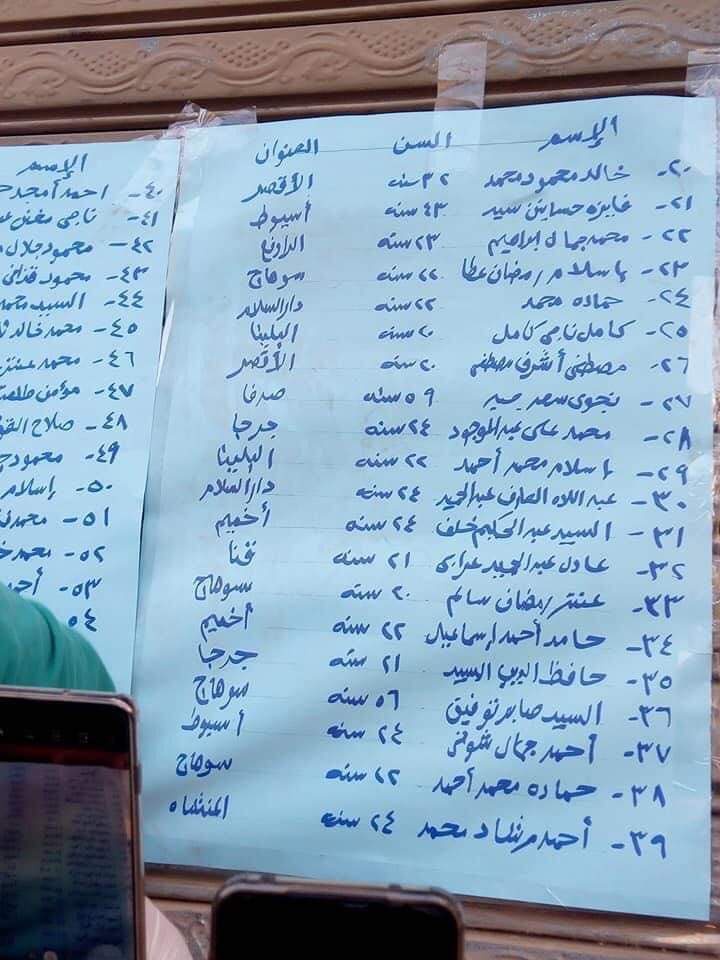 الإسم السن العنوان
٢٠- خالد محمود محمد ٣٢ سنه الأقصر
٢١- فايزه حسانين سيد ٤٣ سنه أسيوط
٢٢- محمد جمال ابراهيم ٢٣ سنه
٢٣- إسلام رمضان عطا ٢٢ سنه سوهاج
٢٤- حماده محمد ٢٢ سنه دار السلام
٢٥- كامل ناجى كامل ٢٠ سنه البلينا
٢٦- مصطفى أشرف مصطفى ٢٠ سنه الأقصر
٢٧- نجوى سعد سيد ٥٩ سنه صدفا
٢٨- محمد على عبد الموجود ٢٤ سنه جرجا
٢٩- إسلام محمد أحمد ٢٢ سنه البلينا
٣٠- عبد اللاه العارف عبد الحميد ٢٤ سنه دار السلام
٣١- السيد عبد الحكيم خلف ٢٤ سنه أخميم
٣٢- عادل عبد المجيد عرابى ٢١ سنه قنا
٣٣- عنتر رمضان سالم ٢٠ سنه سوهاج
٣٤- حامد أحمد إسماعيل ٢٢ سنه أخميم
٣٥- حافظ الديب السيد ٢١ سنه جرجا
٣٦- السيد صابر توفيق ٥٦ سنه سوهاج
٣٧- أحمد جمال شوقى ٢٤ سنه أسيوط
٣٨- حماده محمد أحمد ٢٢ سنه سوهاج
٣٩- أحمد مرشاد محمد ٢٤ سنه المنشاه
الإسم
٤٠- احمد أمجد
٤١- ناجى
٤٢- محمود جلال
٤٣- محمود
٤٤- السيد محمد
٤٥- محمد خالد
٤٦- محمد عنتر
٤٧- مؤمن
٤٨- صلاح
٤٩- محمود
٥٠- إسلام
٥١- محمد
٥٢- محمد
٥٣- أحمد
٥٤